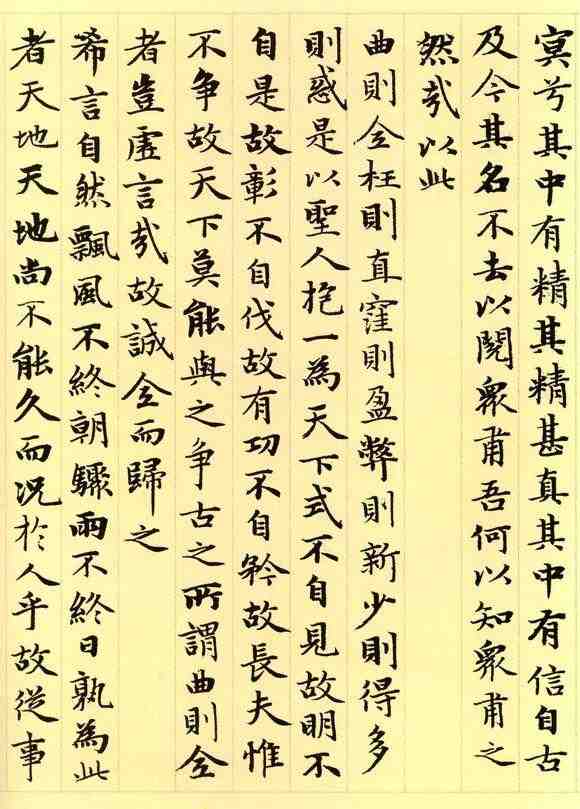 冥兮其中有精其精甚真其中有信自古
及今其名不去以閱衆甫吾何以知衆甫之
然㢤以此
曲則全枉則直窪則盈弊則新少則得多
則惑是以聖人抱一為天下式不自見故明不
自是故彰不自伐故有功不自矜故長夫惟
不争故天下莫能與之争古之所謂曲則全
者豈虚言㢤故誠全而歸之
希言自然飄風不終朝驟雨不終日孰為此
者天地天地尚不能久而況於人乎故從事